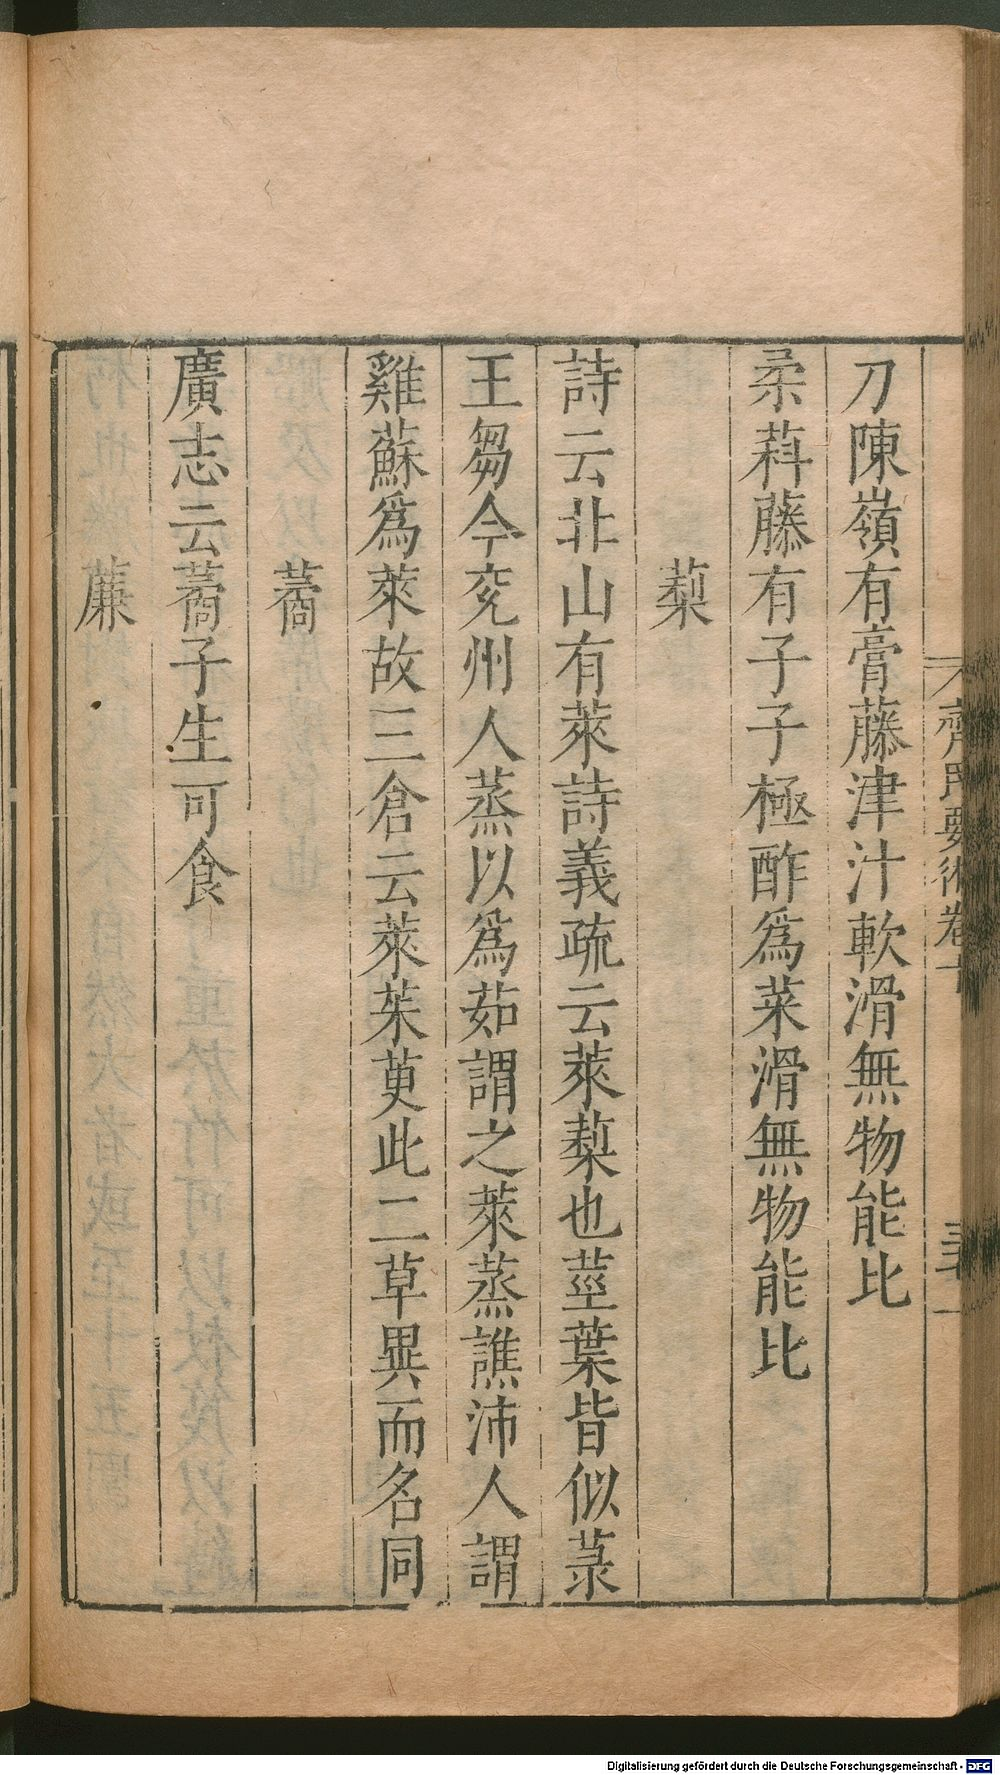 刀陳嶺有膏藤津汁軟滑無物能比
柔蒴藤有子子極酢爲菜滑無物能比
䔣
詩云北山有萊詩義疏云萊䔣也莖葉皆似菉
王芻今兖州人蒸以爲茹謂之萊蒸譙沛人謂
雞蘇爲萊故三倉云萊茱萸此二草異而名同
䕪
廣志云䕪子生可食
薕
齊民要術卷十
Digitalisierung gefördert durch die Deutsche Forschungsgemeinschaft - DFG